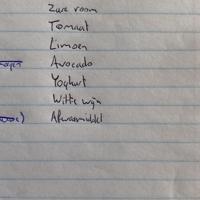 Zure room
Tomaat
Limoen
Avocado
Yoghurt
Witte wijn
Afwasmiddel